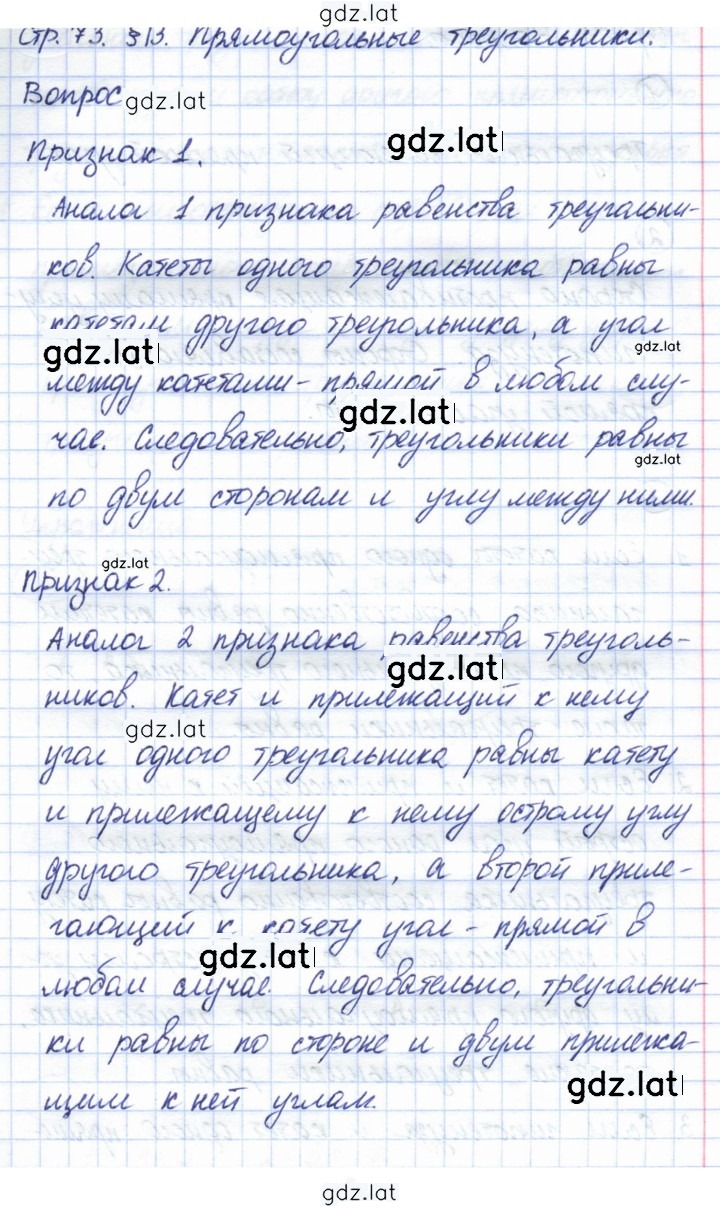 gdz.lat
Стр. 73. §13. Прямоугольные треугольники.
Вопрос gdz.lat
gdz.lat
Признак 1.
Аналог 1 признака равенства треугольни-
ков. Катеты одного треугольника равны
катетам другого треугольника, а угол
gdz.lat gdz.lat
между катетами - прямой в любом слу-
gdz.lat
чае. Следовательно, треугольники равны
gdz.lat
по двум сторонам и углу между ними.
gdz.lat
Признак 2.
Аналог 2 признака равенства треуголь-
gdz.lat
ников. Катет и прилежащий к нему
gdz.lat
угол одного треугольника равны катету
и прилежащему к нему острому углу
другого треугольника, а второй приле-
гающий к катету угол - прямой в
gdz.lat
любом случае. Следовательно, треугольни-
ки равны по стороне и двум прилежа-
gdz.lat
щим к ней углам.
gdz.lat